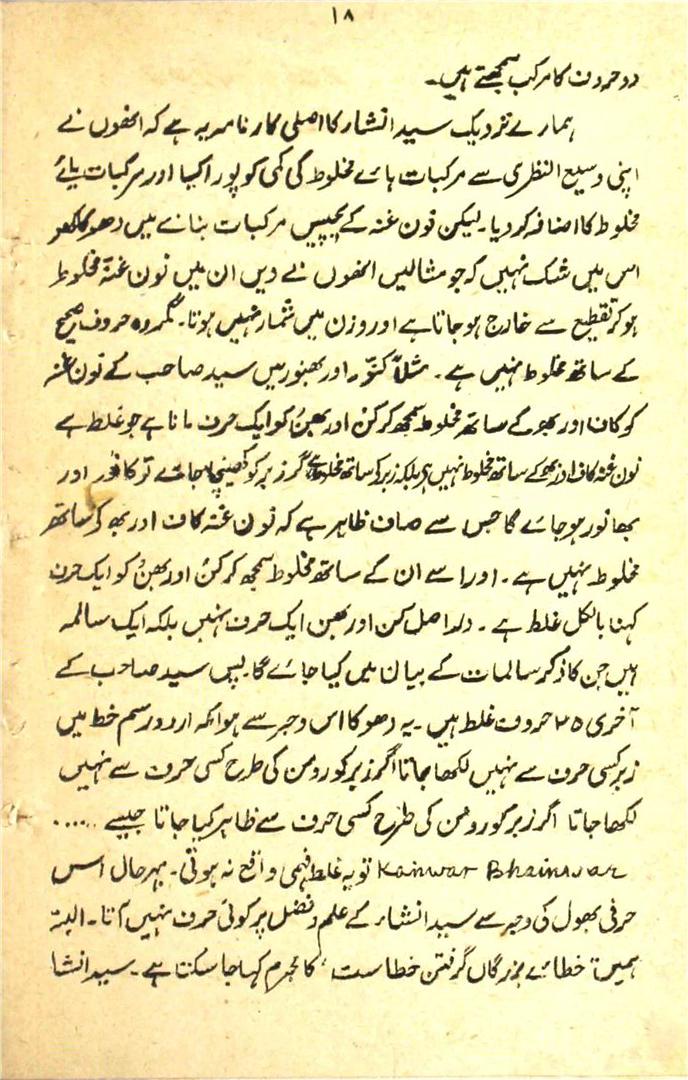 ۱۸
دو حروف کا مرکب سمجھتے ہیں۔
ہمارے نزدیک سید انشار کا اصلی کارنامہ یہ ہے کہ انھوں نے
اپنی وسیع النظری سے مرکبات ہائے مخلوط کی کمی کو پورا کیا اور مرکبات یائے
مخلوط کا اضافہ کر دیا۔ لیکن نون غنہ کے پچیس مرکبات بنانے میں دھوکا کھو
اس میں شک نہیں کہ جو مثالیں انھوں نے دیں ان میں نون غنّہ مخلوط
ہو کر تقطیع سے خارج ہو جاتا ہے اور وزن میں شمار نہیں ہوتا۔ مگر وہ حروف صحیح
کے ساتھ مخلوط نہیں ہے۔ مثلاً کنوّر اور بھنور میں سید صاحب کے نون غنہ
کو کاف اور بھ کے ساتھ مخلوط سمجھ کر کنْ اور بھنُ کو ایک حرف مانا ہے جو غلط ہے
نون غنہ کاف اور بھ کے ساتھ مخلوط نہیں ہے بلکہ زبر کے ساتھ مخلوط ہے اگر زبر کو کھینچا جائے تو کانور اور
بھانور ہو جائے گا جس سے صاف ظاہر ہے کہ نون غنہ کاف اور بھ کے ساتھ
مخلوط نہیں ہے۔ اور اسے ان کے ساتھ مخلوط سمجھ کر کنْ اور بھنُ کو ایک حرف
کہنا بالکل غلط ہے۔ دراصل کن اور بھن ایک حرف نہیں بلکہ ایک سالمہ
ہیں جن کا ذکر سالمات کے بیان میں کیا جائے گا۔ پس سید صاحب کے
آخری ۲۵ حروف غلط ہیں۔ یہ دھوکا اس وجہ سے ہوا کہ اردو رسم خط میں
زبر کسی حرف سے نہیں لکھا جاتا اگر زبر کو رومن کی طرح کسی حرف سے نہیں
لکھا جاتا اگر زبر کو رومن کی طرح کسی حرف سے ظاہر کیا جاتا جیسے .....
Kanwar Bhainwar تو یہ غلط فہمی واقع نہ ہوتی۔ بہرحال اس
حرفی بھول کی وجہ سے سید انشار کے علم و فضل پر کوئی حرف نہیں آتا۔ البتہ
ہمیں "خطائے بزرگاں گرفتن خطاست" کا مجرم کہا جا سکتا ہے۔ سید انشا